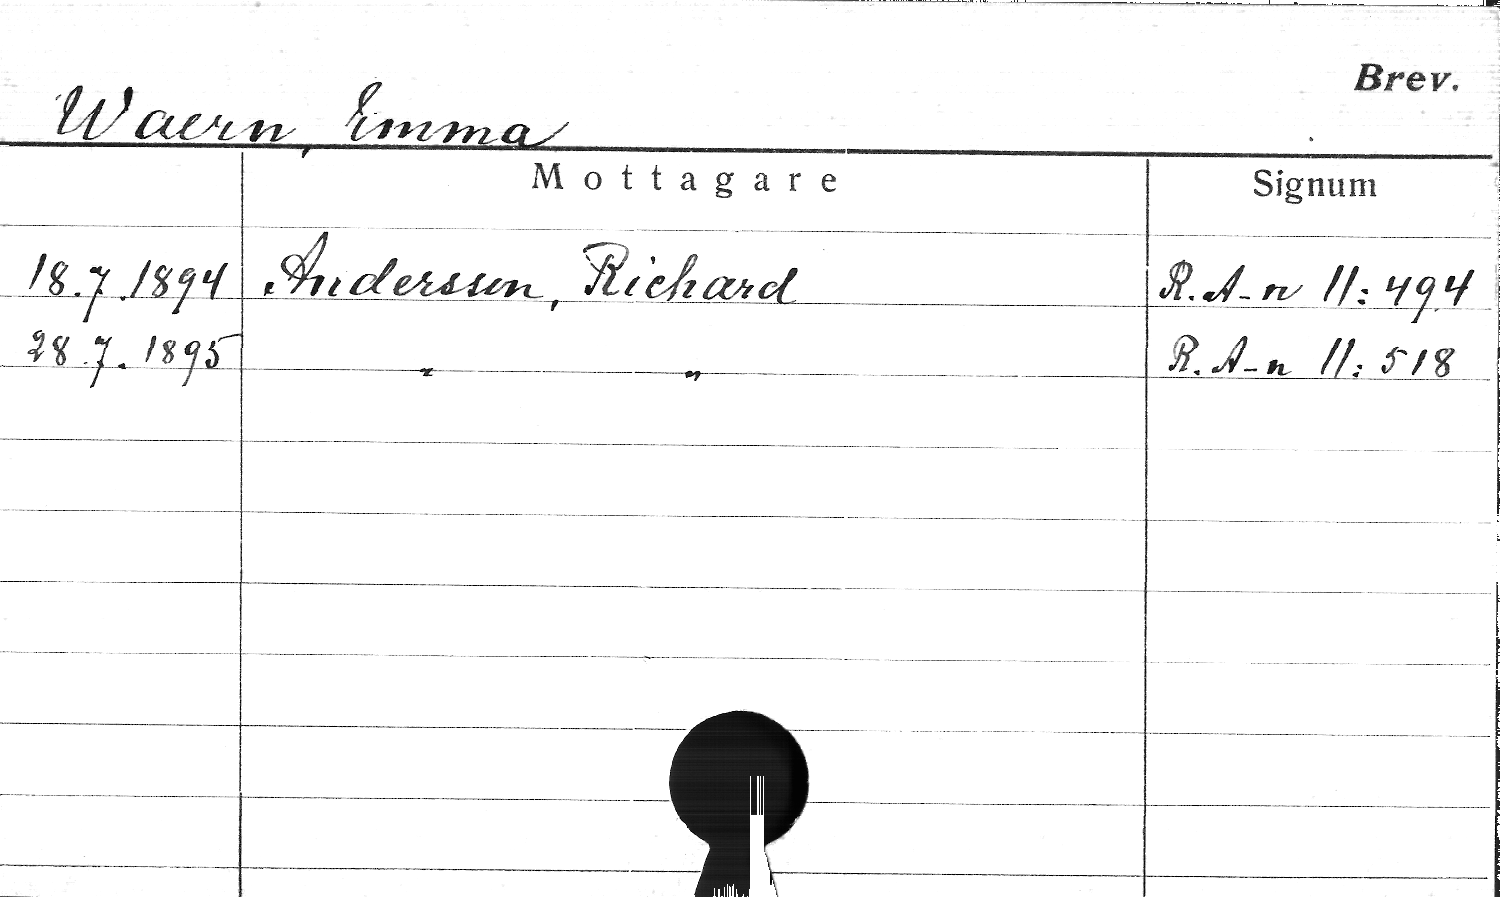 Brev.
Waern, Emma
Mottagare Signum
18.7.1894 Andersson, Richard R.A-n II:494
28.7.1895 " " R.A-n II:518